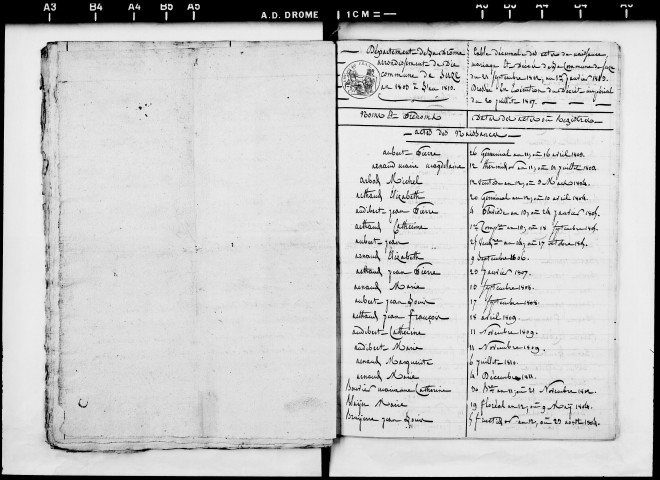 A3 B4 A4 B5 A5
A.D. DROME
1 CM
Département de la Drôme
arrondissement de Die
commune de Suze
an 1802 à l'an 1812.
Table décennale des actes de naissance,
mariage et Décès de la Commune de Suze
du 21 Septembre 1802, au 1er janvier 1813.
Dressée en exécution du Décret impérial
du 20 juillet 1807.
Noms et Prénoms
Dates des actes aux Registres
actes des Naissances
aubert Pierre 26 Germinal an 11, ou 16 avril 1803.
arnaud marie magdelaine 12 thermidor an 11, ou 31 juillet 1803.
arbod Michel 12 ventôse an 12, ou 3 Mars 1804.
arthaud Elizabeth 20 Germinal an 12, ou 10 avril 1804.
audibert jean Pierre 4 Pluviôse an 13, ou 24 janvier 1805.
arthaud Catherine 1er Compre an 13, ou 18 Septembre 1805.
aubert jean 25 an 14, ou 17 octobre 1805.
arnaud Elizabeth 9 Septembre 1806.
arthaud jean Pierre 20 janvier 1807.
arnaud Marie 10 Septembre 1808.
aubert jean Louis 17 Septembre 1808.
arthaud jean François 18 avril 1809.
audibert Catherine 11 Novembre 1809.
audibert Marie 11 Novembre 1809.
arnaud Marguerite 6 juillet 1810.
arnaud Marie 4 Décembre 1811.
Catherine 30 an 11, ou 21 Novembre 1802.
Marie 19 floréal an 12, ou 9 May 1804.
jean Louis 5 fructidor an 12, ou 23 août 1804.